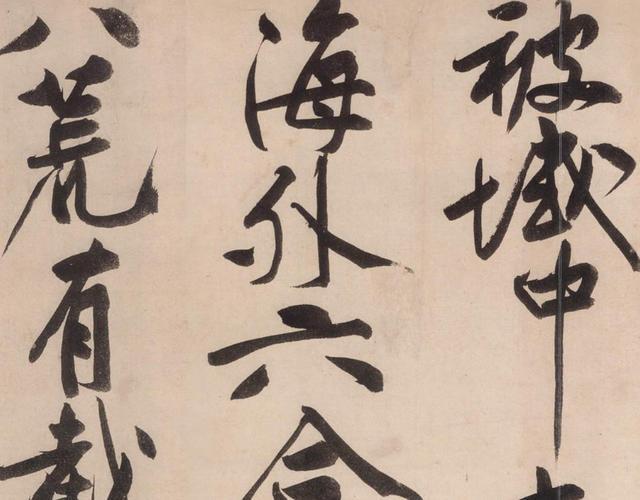 被域中
海外六合
八荒有截